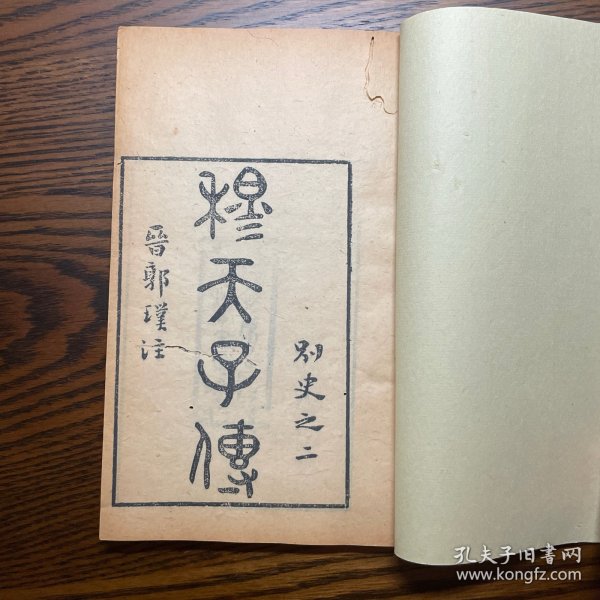 别史之二
穆天子傳
晉郭璞注
孔夫子旧書网
www.kongfz.com